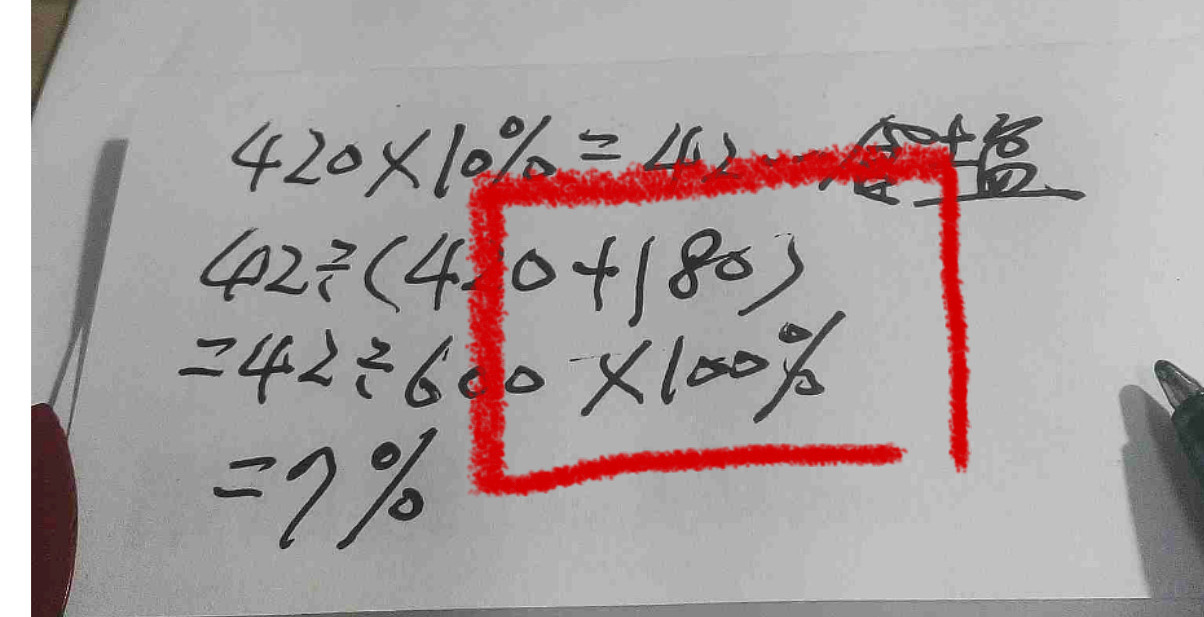 420×10%=42…含盐
42÷(420+180)
=42÷600×100%
=7%